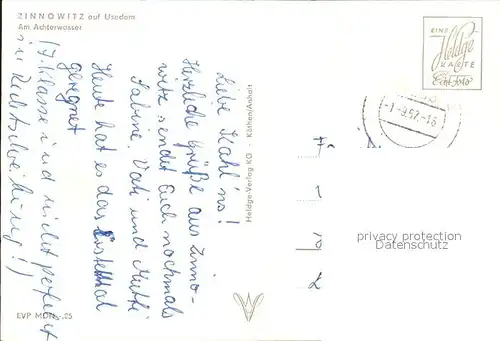 ZINNOWITZ auf Usedom
Am Achterwasser
EINE
Heldge
KARTE
Echt Foto
Liebe Kahl'ns!
Herzliche Grüße aus Zinno-
witz sendet Euch nochmals
Sabine, Vati und Mutti
Heute hat es das
geregnet
(7. Klasse und nicht perfekt
in Rechtschreibung!)
Heldge-Verlag KG · Köthen/Anhalt
privacy protection
Datenschutz
EVP MDN -.25